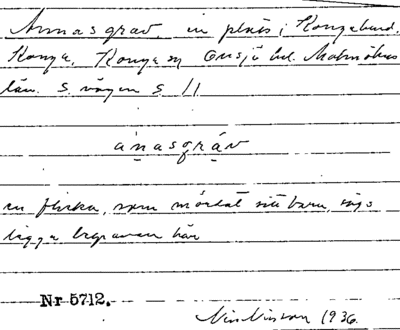 Annasgrav, en plats i Kongalund.
Konga, Konga sn Onsjö hd. Malmöhus
län. S. vägen S. II
ànasgrȧv
en flicka, som mördat sitt barn, sägs
ligga begraven här
Nr 5712.
Nils Nilsson 1936.